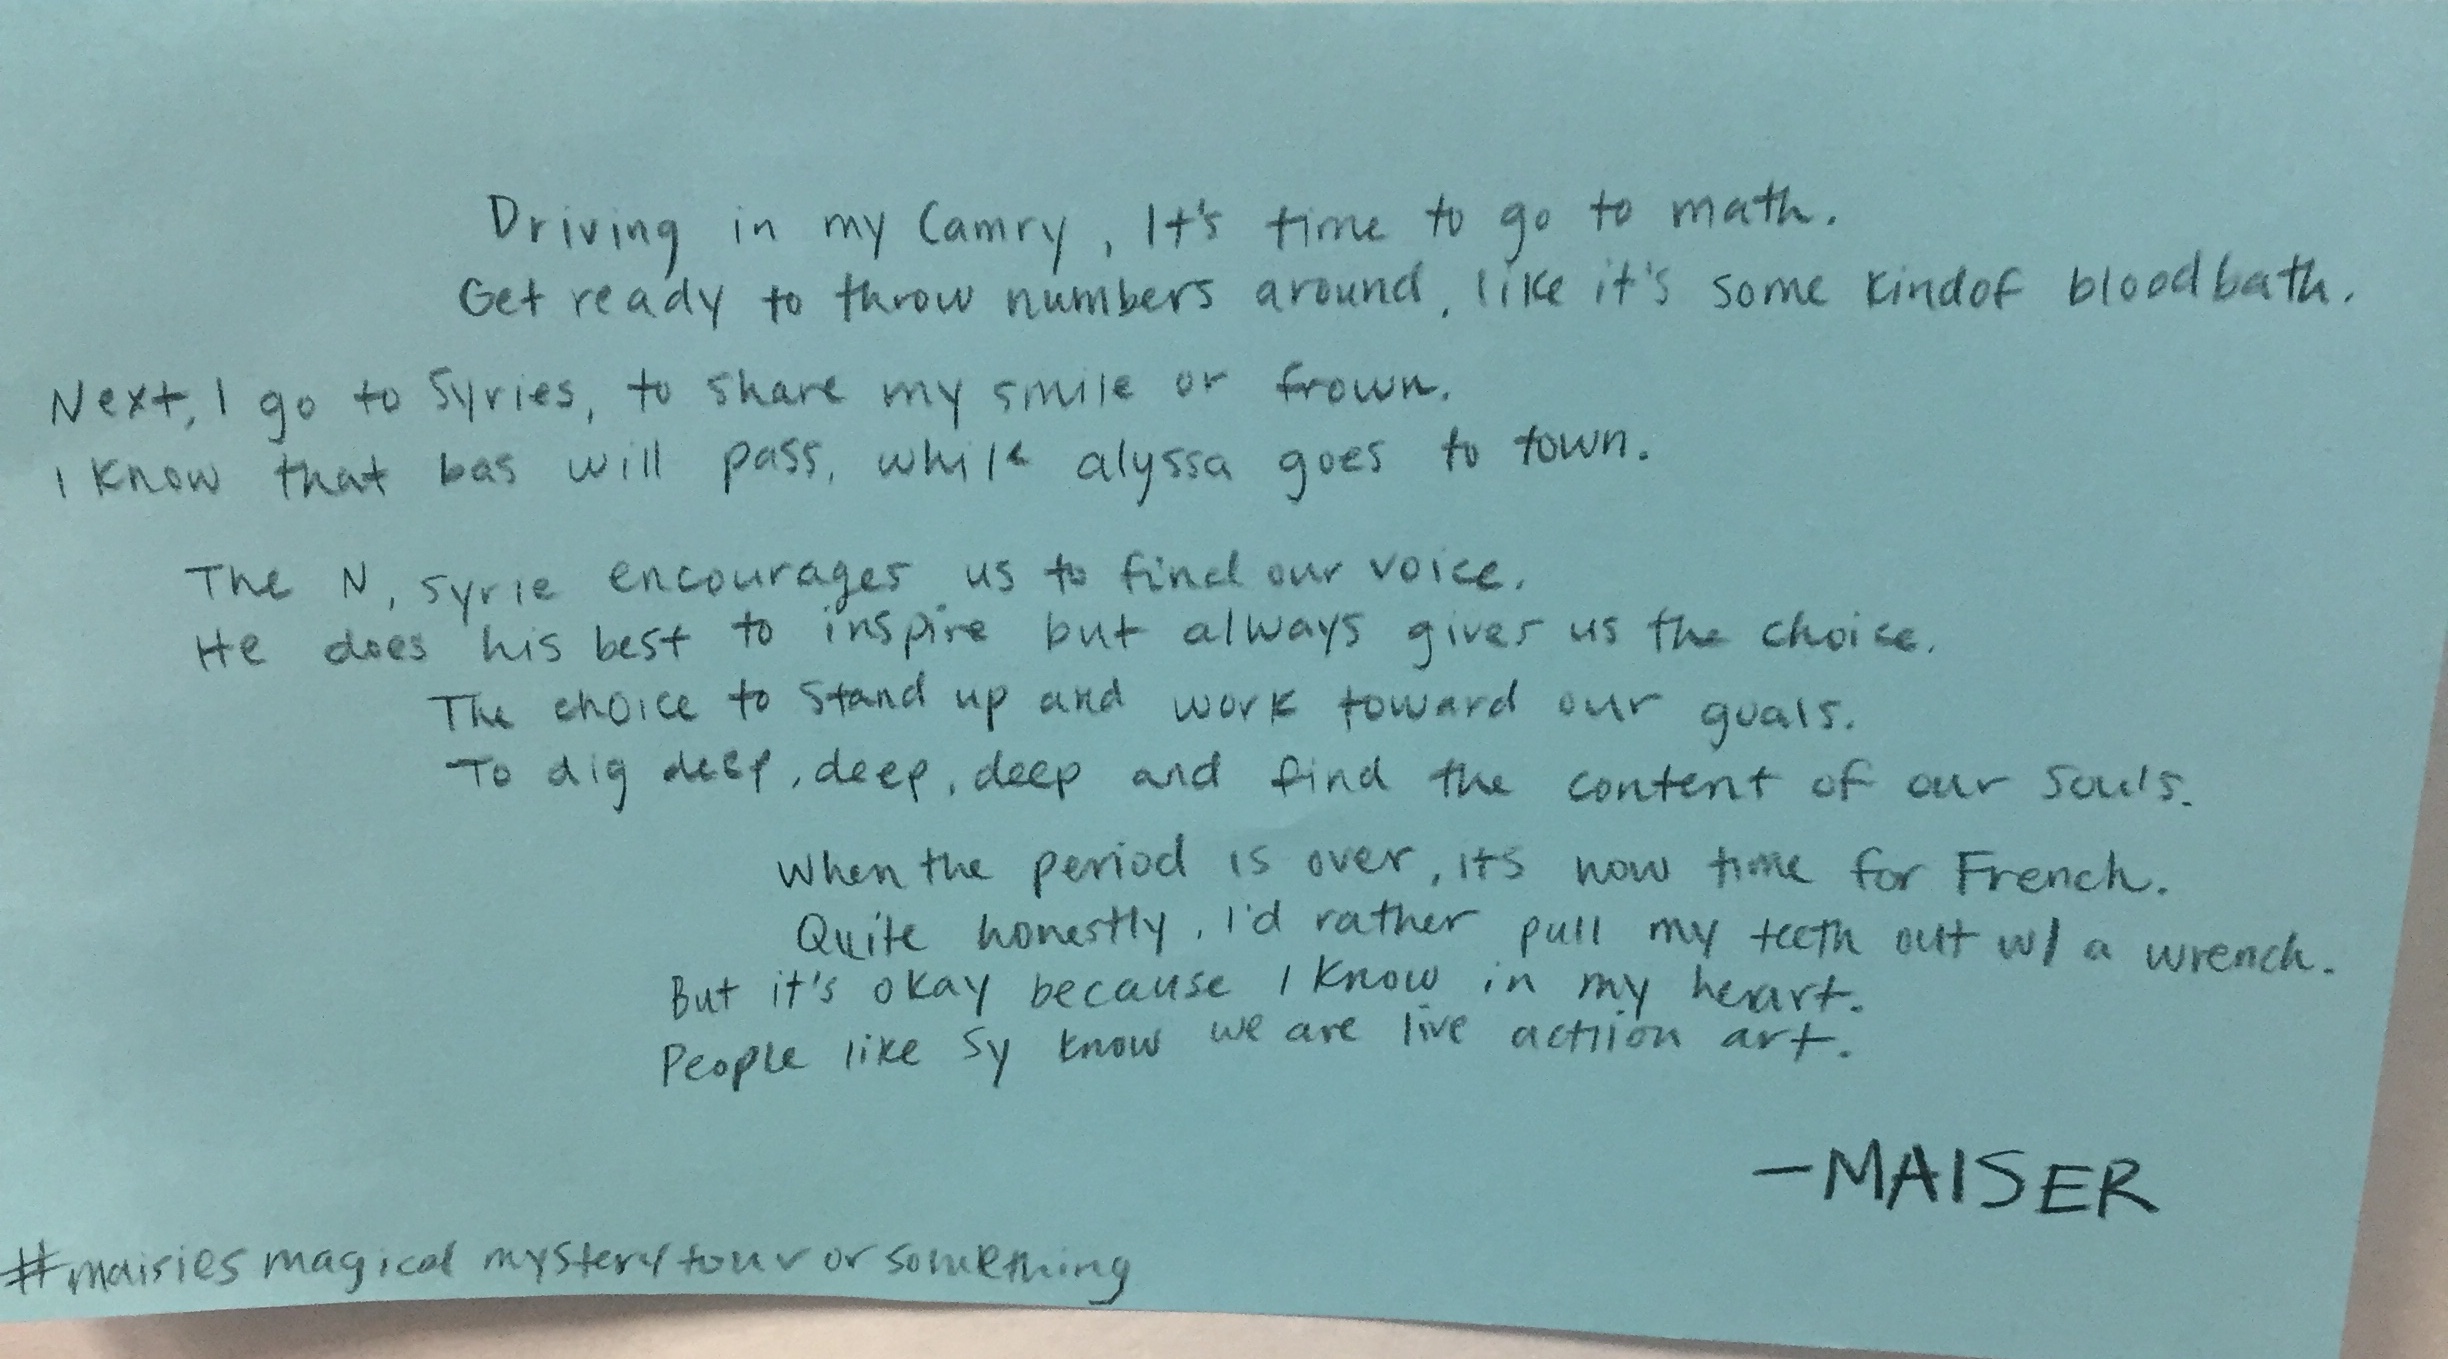 Driving in my Camry, It's time to go to math.
Get ready to throw numbers around, like it's some kindof bloodbath.
Next, I go to Syries, to share my smile or frown.
I know that bas will pass, while alyssa goes to town.
The N, Syrie encourages us to find our voice.
He does his best to inspire but always gives us the choice.
The choice to stand up and work toward our goals.
To dig deep, deep, deep and find the content of our souls.
When the period is over, its now time for French.
Quite honestly, I'd rather pull my teeth out w/ a wrench.
But it's okay because I know in my heart.
People like Sy know we are live actiion art.
—MAISER
#maisiesmagicalmysterytourorsomething